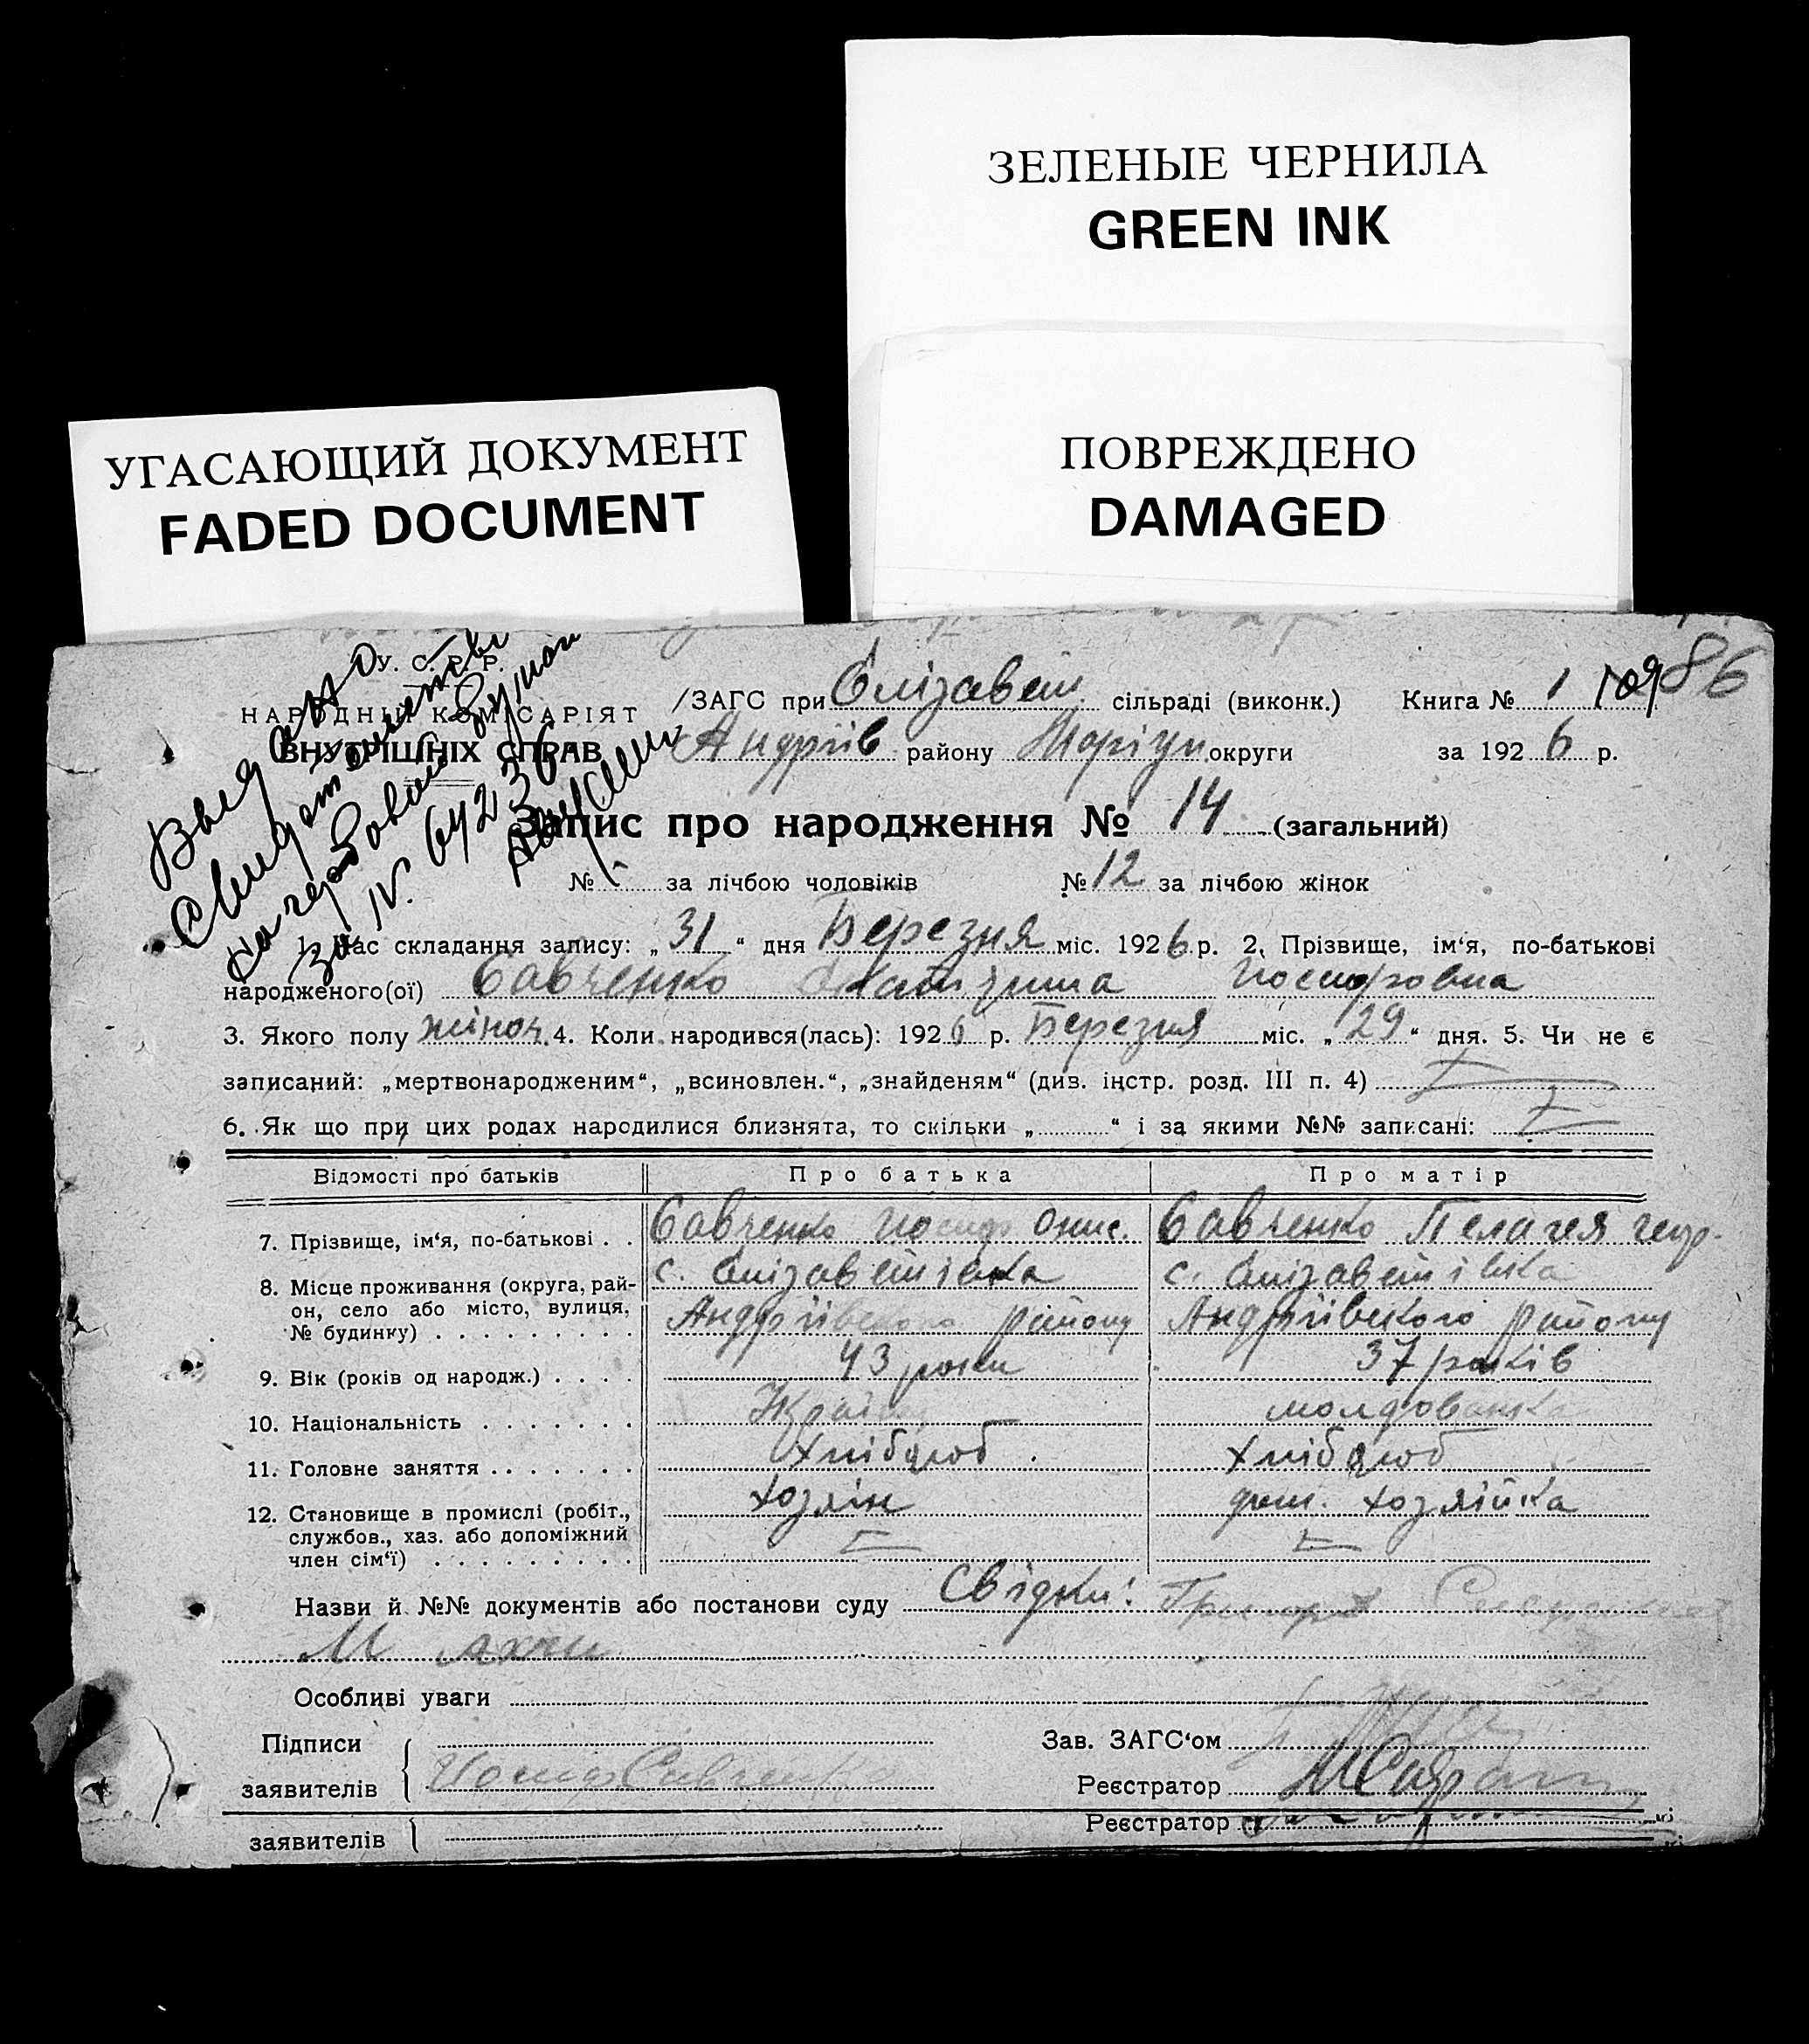 ЗЕЛЕНЫЕ ЧЕРНИЛА
GREEN INK
ПОВРЕЖДЕНО
DAMAGED
УГАСАЮЩИЙ ДОКУМЕНТ
FADED DOCUMENT
У. С. Р. Р.
НАРОДНІЙ КОМІСАРІЯТ
ВНУТРІШНІХ СПРАВ
Выдано
Свидетельство
на гербовой бумаге
за №. 64236.
ЗАГС при Єлізавет. сільраді (виконк.) Книга № 1 109 86
Андріїв району Маріуп округи за 1926 р.
Запис про народження № 14 (загальний)
№ за лічбою чоловіків № 12 за лічбою жінок
1. Час складання запису: „31“ дня Березня міс. 1926 р. 2. Прізвище, ім‘я, по-батькові
народженого(ої) Савченко Йосифовна
3. Якого полу жіноч. 4. Коли народився(лась): 1926 р. Березня міс. „29“ дня. 5. Чи не є
записаний: „мертвонародженим“, „всиновлен.“, „знайденям“ (див. інстр. розд. III п. 4)
6. Як що при цих родах народилися близнята, то скільки „ “ і за якими №№ записані:
Відомості про батьків Про батька Про матір
7. Прізвище, ім‘я, по-батькові . . Савченко Йосиф Онис. Савченко Пелагея
8. Місце проживання (округа, рай- с. Єлізаветівка с. Єлізаветівка
он, село або місто, вулиця, Андріївского району Андріївского району
№ будинку) . . . . . . . . .
9. Вік (років од народж.) . . . . 43 роки 37 років
10. Національність . . . . . . . Україн молдованка
11. Головне заняття . . . . . . . Хлібороб Хлібороб
12. Становище в промислі (робіт., хозяін дом. хозяійка
службов., хаз. або допоміжний
член сім‘ї) . . . . . . . . .
Назви й №№ документів або постанови суду Свідки: Григорій
Особливі уваги
Підписи Зав. ЗАГС‘ом
заявителів Йосиф Савченко Реєстратор
Реєстратор
заявителів